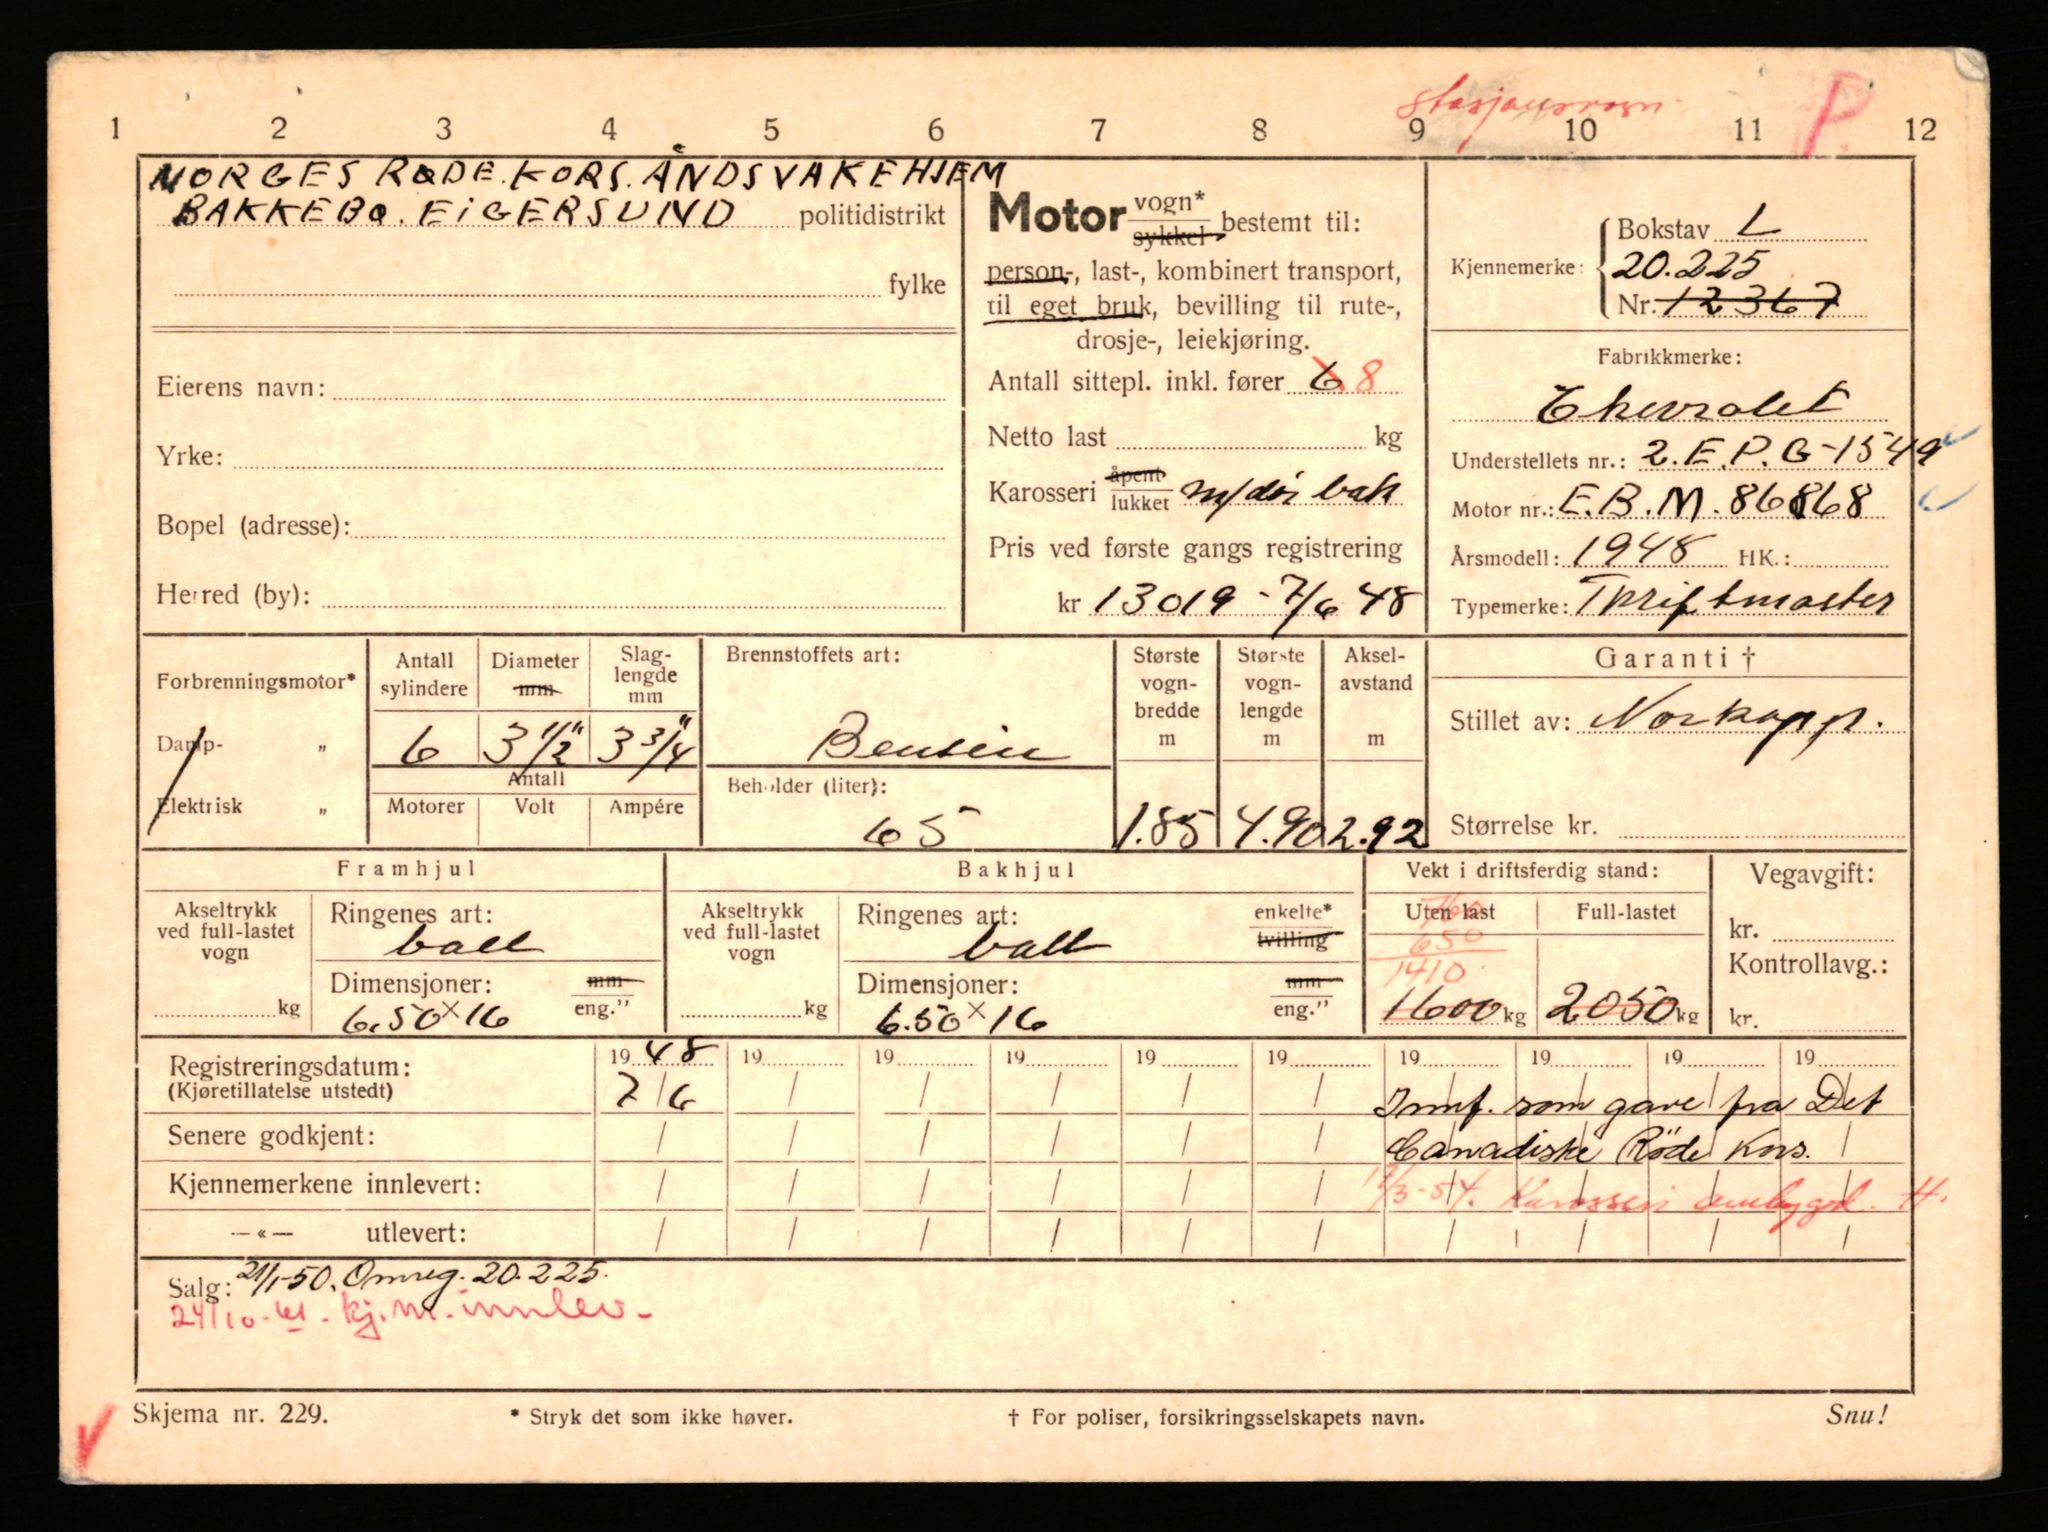 stasjonsvogn P
1 2 3 4 5 6 7 8 9 10 11 12
NORGES RØDE. KORS. ÅNDSVAKEHJEM
BAKKEBØ. EIGERSUND politidistrikt
fylke
Eierens navn:
Yrke:
Bopel (adresse):
Herred (by):
Motor vogn* sykkel bestemt til:
person-, last-, kombinert transport,
til eget bruk, bevilling til rute-,
drosje-, leiekjøring.
Antall sittepl. inkl. fører 6. 8
Netto last kg
Karosseri åpent lukket m/dør bak
Pris ved første gangs registrering
kr 13019 - 7/6 48
Bokstav L
Kjennemerke: 20.225
Nr. 12367
Fabrikkmerke:
Chevrolet
Understellets nr.: 2.E.P.G-1549
Motor nr.: E.B.M. 86168
Årsmodell: 1948 HK.:
Typemerke: Thriftmaster
Forbrenningsmotor*
Damp- „
Elektrisk „
Antall sylindere
6
Diameter mm
3 1/2"
Slag-lengde mm
3 3/4"
Antall
Motorer Volt Ampére
Brennstoffets art:
Bensin
Beholder (liter):
65
Største vogn-bredde m
1.85
Største vogn-lengde m
4.90
Aksel-avstand m
2.92
Garanti †
Stillet av: Norkopp.
Størrelse kr.
Framhjul
Akseltrykk ved full-lastet vogn
kg
Ringenes art:
ball
Dimensjoner: mm eng."
6.50 × 16
Bakhjul
Akseltrykk ved full-lastet vogn
kg
Ringenes art: enkelte* tvilling
ball
Dimensjoner: mm eng."
6.50 × 16
Vekt i driftsferdig stand:
Uten last
760
650
1410
1600 kg
Full-lastet
2050 kg
Vegavgift:
kr.
Kontrollavg.:
kr.
Registreringsdatum: 19 48 19 19 19 19 19 19 19 19 19
(Kjøretillatelse utstedt) 7/6 / / / / / Innf. som gave fra Det
Senere godkjent: / / / / / / Canadiske Røde Kors.
Kjennemerkene innlevert: / / / / / / 17/3-54. Karosseri ombygd. H.
—«— utlevert: / / / / / / / / / /
Salg: 21/1-50. Omreg. 20.225.
24/10-61. kj.m. innlev.
Skjema nr. 229. * Stryk det som ikke høver. † For poliser, forsikringsselskapets navn. Snu!